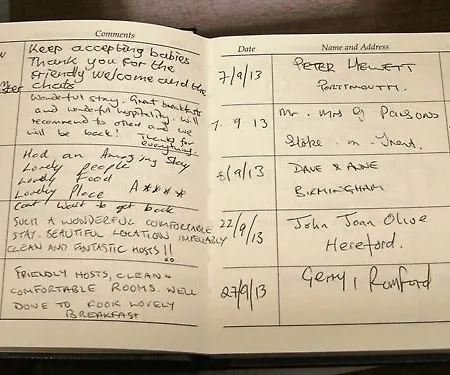 Comments
Keep accepting babies
Thank you for the
friendly welcome and the
chats
Wonderful stay. Great breakfasts
and wonderful hospitality. Will
recommend to others and we
will be back! Thanks for
everything.
Had an Amazing Stay
Lovely People
Lovely Food
Lovely Place A****
Cant wait to get back
SUCH A WONDERFUL COMFORTABLE
STAY. BEAUTIFUL LOCATION IMPECCABLY
CLEAN AND FANTASTIC HOSTS!!
FRIENDLY HOSTS, CLEAN +
COMFORTABLE ROOMS. WELL
DONE TO COOK LOVELY
BREAKFAST
Date Name and Address
7/9/13 PETER HEWETT
PORTSMOUTH.
7.9.13 Mr. Mrs G Parsons
Stoke-on-Trent.
8/9/13 DAVE & ANNE
BIRMINGHAM
22/9/13 John Joan Olive
Hereford.
27/9/13 Gerry, Romford